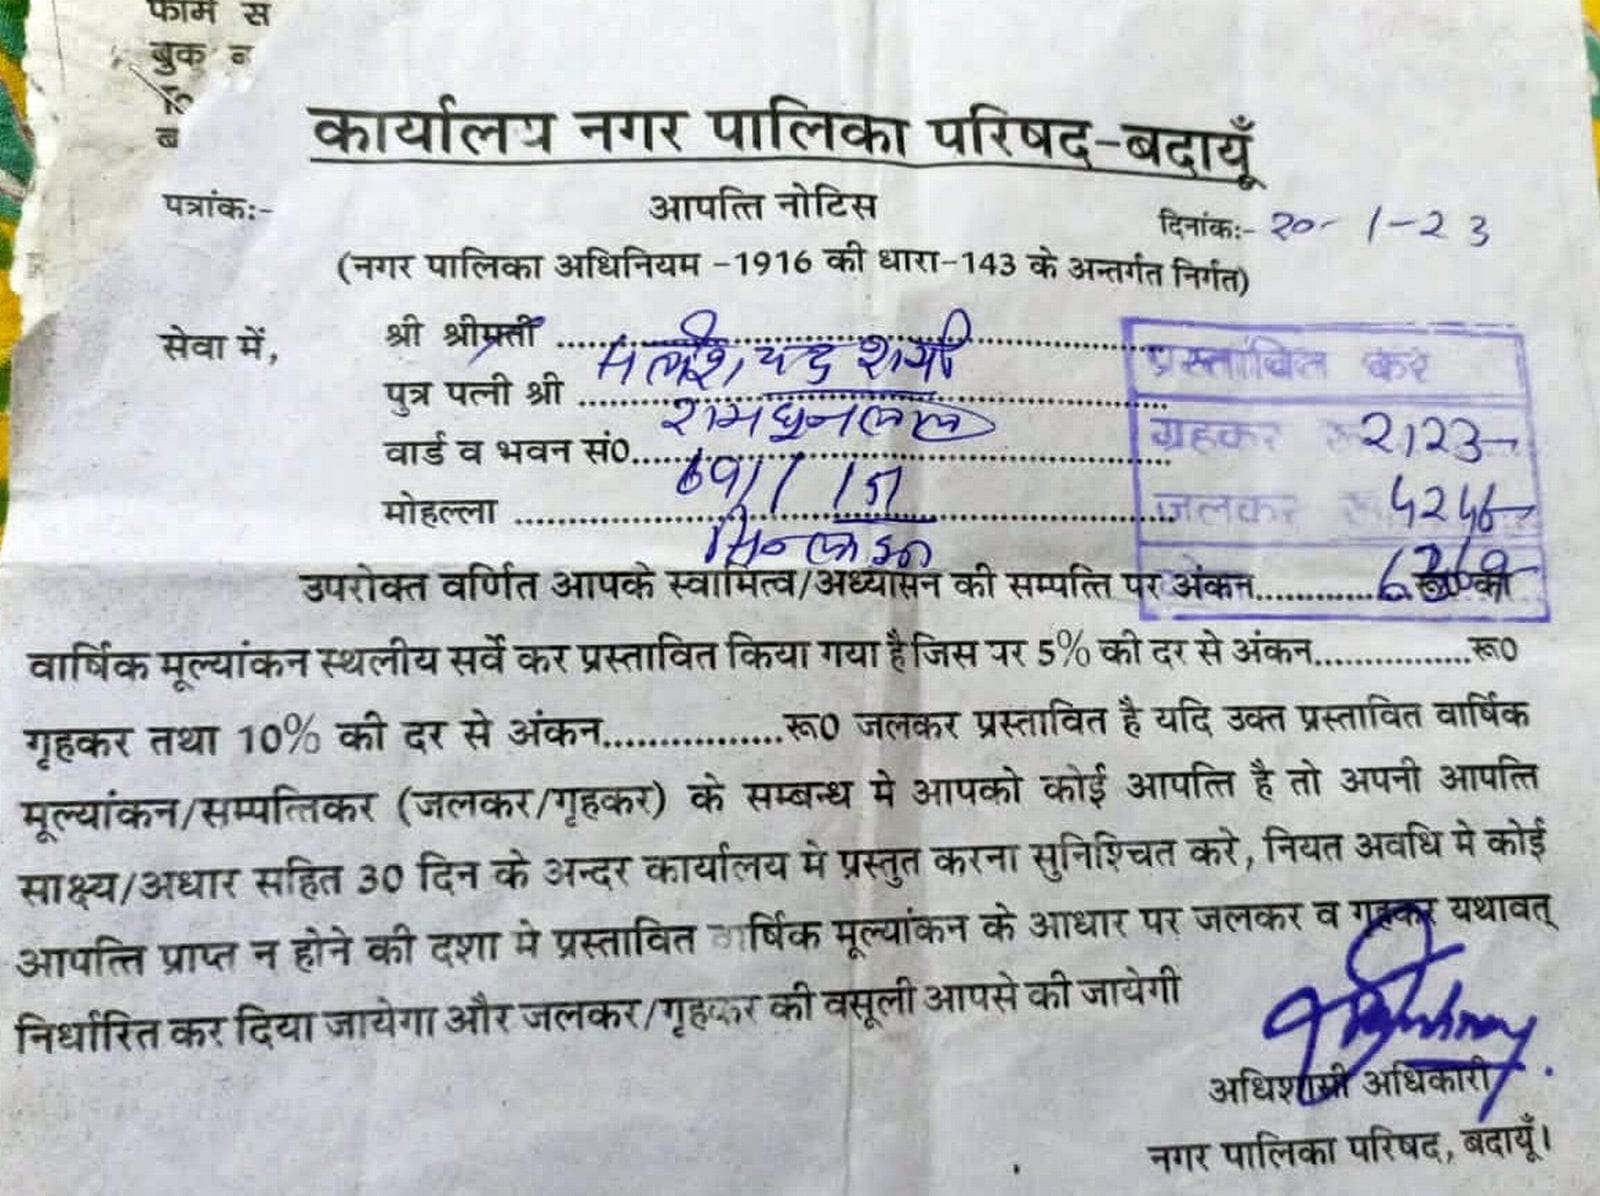 फार्म स
बुक न
कार्यालय नगर पालिका परिषद-बदायूँ
पत्रांकः- आपत्ति नोटिस दिनांकः- 20-1-23
(नगर पालिका अधिनियम -1916 की धारा-143 के अन्तर्गत निर्गत)
सेवा में, श्री श्रीमती ..........
पुत्र पत्नी श्री ..........
वार्ड व भवन सं0..........
मोहल्ला ..........
प्रस्तावित कर
ग्रहकर रू 2123
जलकर रू 4246
उपरोक्त वर्णित आपके स्वामित्व/अध्यासन की सम्पत्ति पर अंकन.............6369 रू0 का
वार्षिक मूल्यांकन स्थलीय सर्वे कर प्रस्तावित किया गया है जिस पर 5% की दर से अंकन................रू0
गृहकर तथा 10% की दर से अंकन................रू0 जलकर प्रस्तावित है यदि उक्त प्रस्तावित वार्षिक
मूल्यांकन/सम्पत्तिकर (जलकर/गृहकर) के सम्बन्ध मे आपको कोई आपत्ति है तो अपनी आपत्ति
साक्ष्य/अधार सहित 30 दिन के अन्दर कार्यालय मे प्रस्तुत करना सुनिश्चित करे, नियत अवधि मे कोई
आपत्ति प्राप्त न होने की दशा मे प्रस्तावित वार्षिक मूल्यांकन के आधार पर जलकर व गृहकर यथावत्
निर्धारित कर दिया जायेगा और जलकर/गृहकर की वसूली आपसे की जायेगी
अधिशासी अधिकारी
नगर पालिका परिषद, बदायूँ।